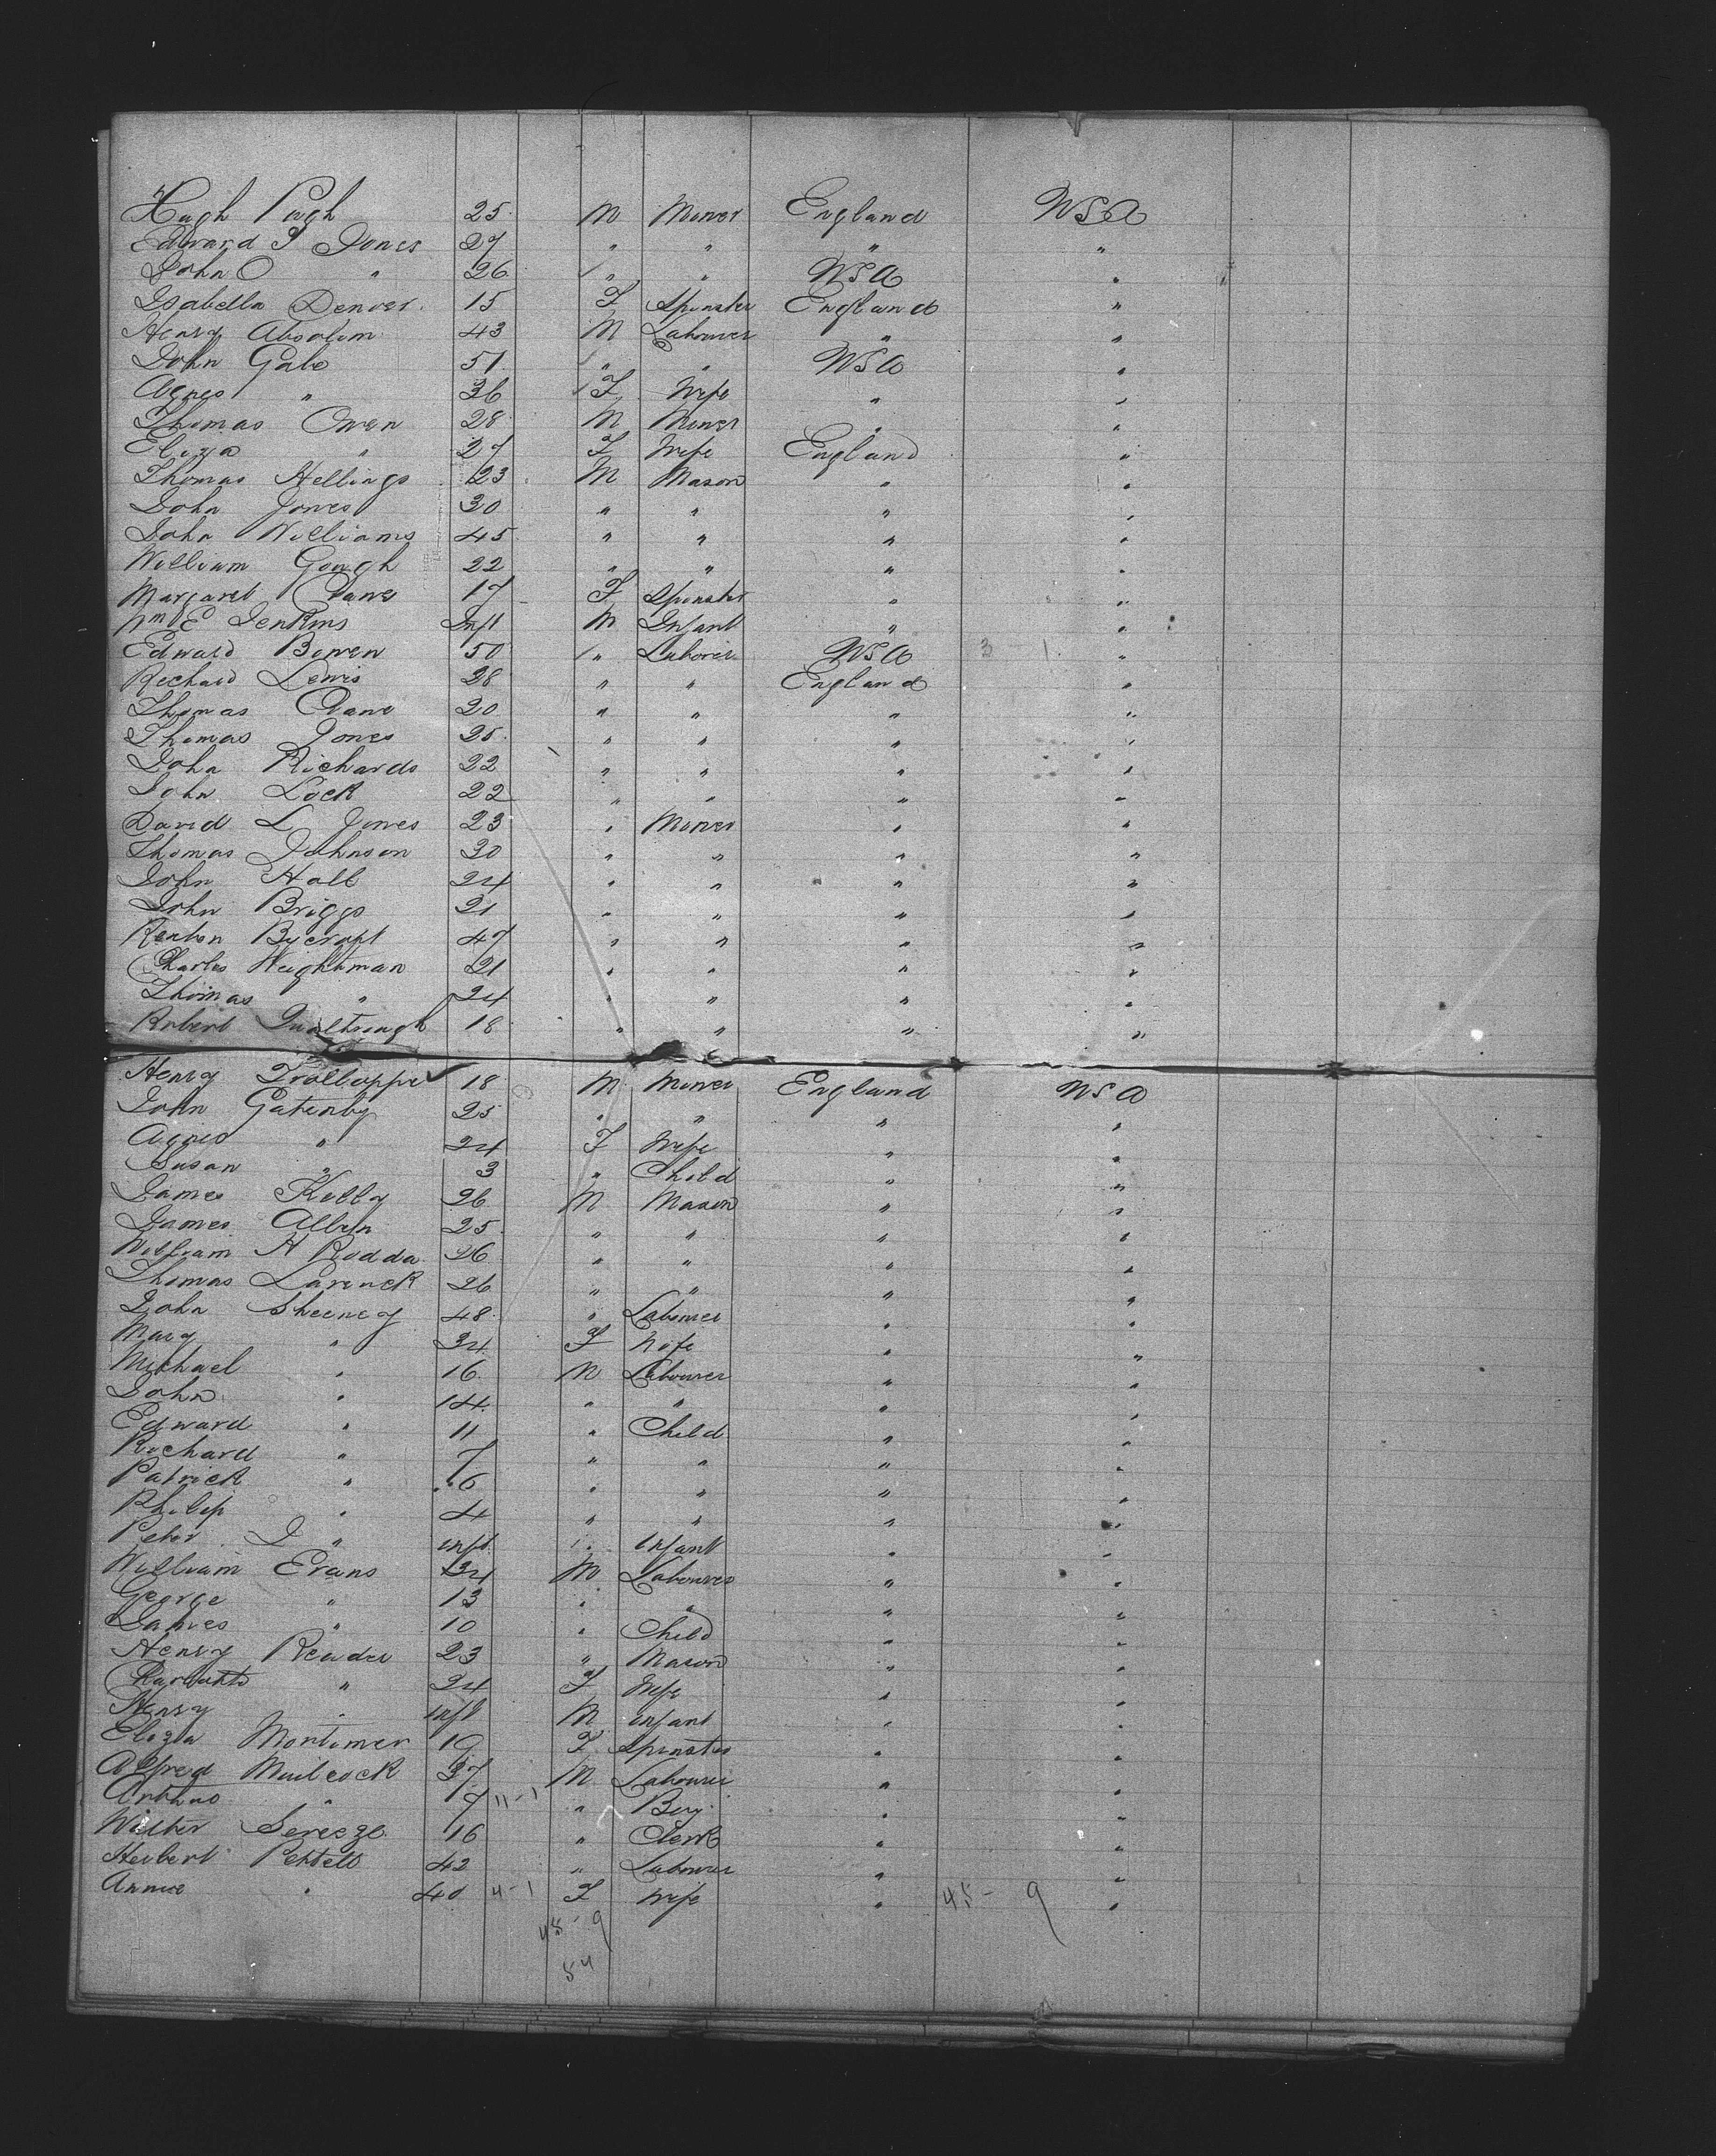 Hugh Pugh 25 M Miner England USA
Edward J Jones 27 " " " "
John O " 26 " " USA "
Isabella Denver 15 F Spinster England "
Henry Absolum 43 M Labourer " "
John Gale 51 " " USA "
Agnes " 36 F Wife " "
Thomas Owen 28 M Miner " "
Eliza " 27 F Wife England "
Thomas Hellings 23 M Mason " "
John Jones 30 " " " "
John Williams 45 " " " "
William Gough 22 " " " "
Margaret 17 F Spinster " "
Wm E Jenkins Inft M Infant " "
Edward Bowen 50 " Laborer USA 3 1 "
Richard Lewis 28 " " England "
Thomas 20 " " " "
Thomas Jones 25 " " " "
John Richards 22 " " " "
John Lock 22 " " " "
David L Jones 23 " Miner " "
Thomas Johnson 30 " " " "
John Hall 24 " " " "
John Briggs 21 " " " "
Bycroft 47 " " " "
Charles Weightman 21 " " " "
Thomas " 24 " " " "
Robert Qualtrough 18 " " " "
Henry Trolloppe 18 M Miner England USA
John Gatenby 25 " " " "
Agnes " 24 F Wife " "
Susan " 3 " Child " "
James Kelly 26 M Mason " "
James Allen 25 " " " "
William H Rodda 26 " " " "
Thomas 26 " " " "
John Sheeney 48 " Labourer " "
Mary " 34 F Wife " "
Michael " 16 M Labourer " "
John " 14 " " " "
Edward " 11 " Child " "
Richard " 7 " " " "
Patrick " 6 " " " "
Philip " 4 " " " "
Peter J " inft " infant " "
William Evans 34 M Labourer " "
George " 13 " " " "
James " 10 " Child " "
Henry Reader 23 " Mason " "
" 24 F Wife " "
Henry " inft M infant " "
Eliza Mortimer 19 F Spinster " "
Alfred 37 M Labourer " "
Arthur " 7 11-1 " Boy " "
Walter 16 " Clerk " "
Herbert 42 " Labourer " "
Annie " 40 4-1 F Wife " 45- 9 "
45- 9
54